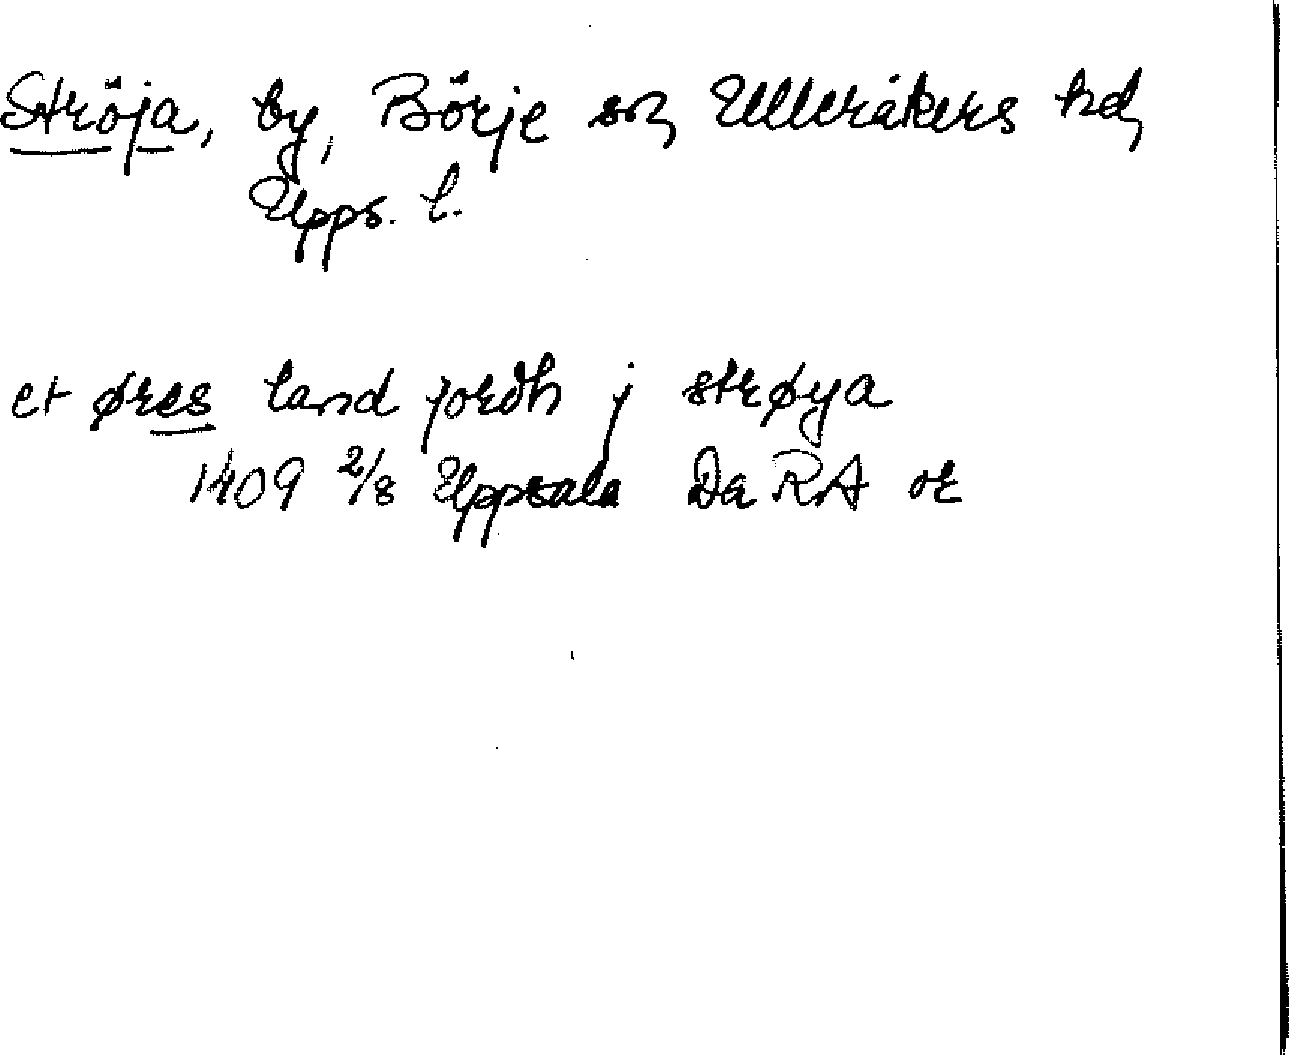 Ströja, by, Börje sn, Ulleråkers hd,
Upps. l.
et øres land jordh j strøya
1409 2/8 Uppsala Da RA or